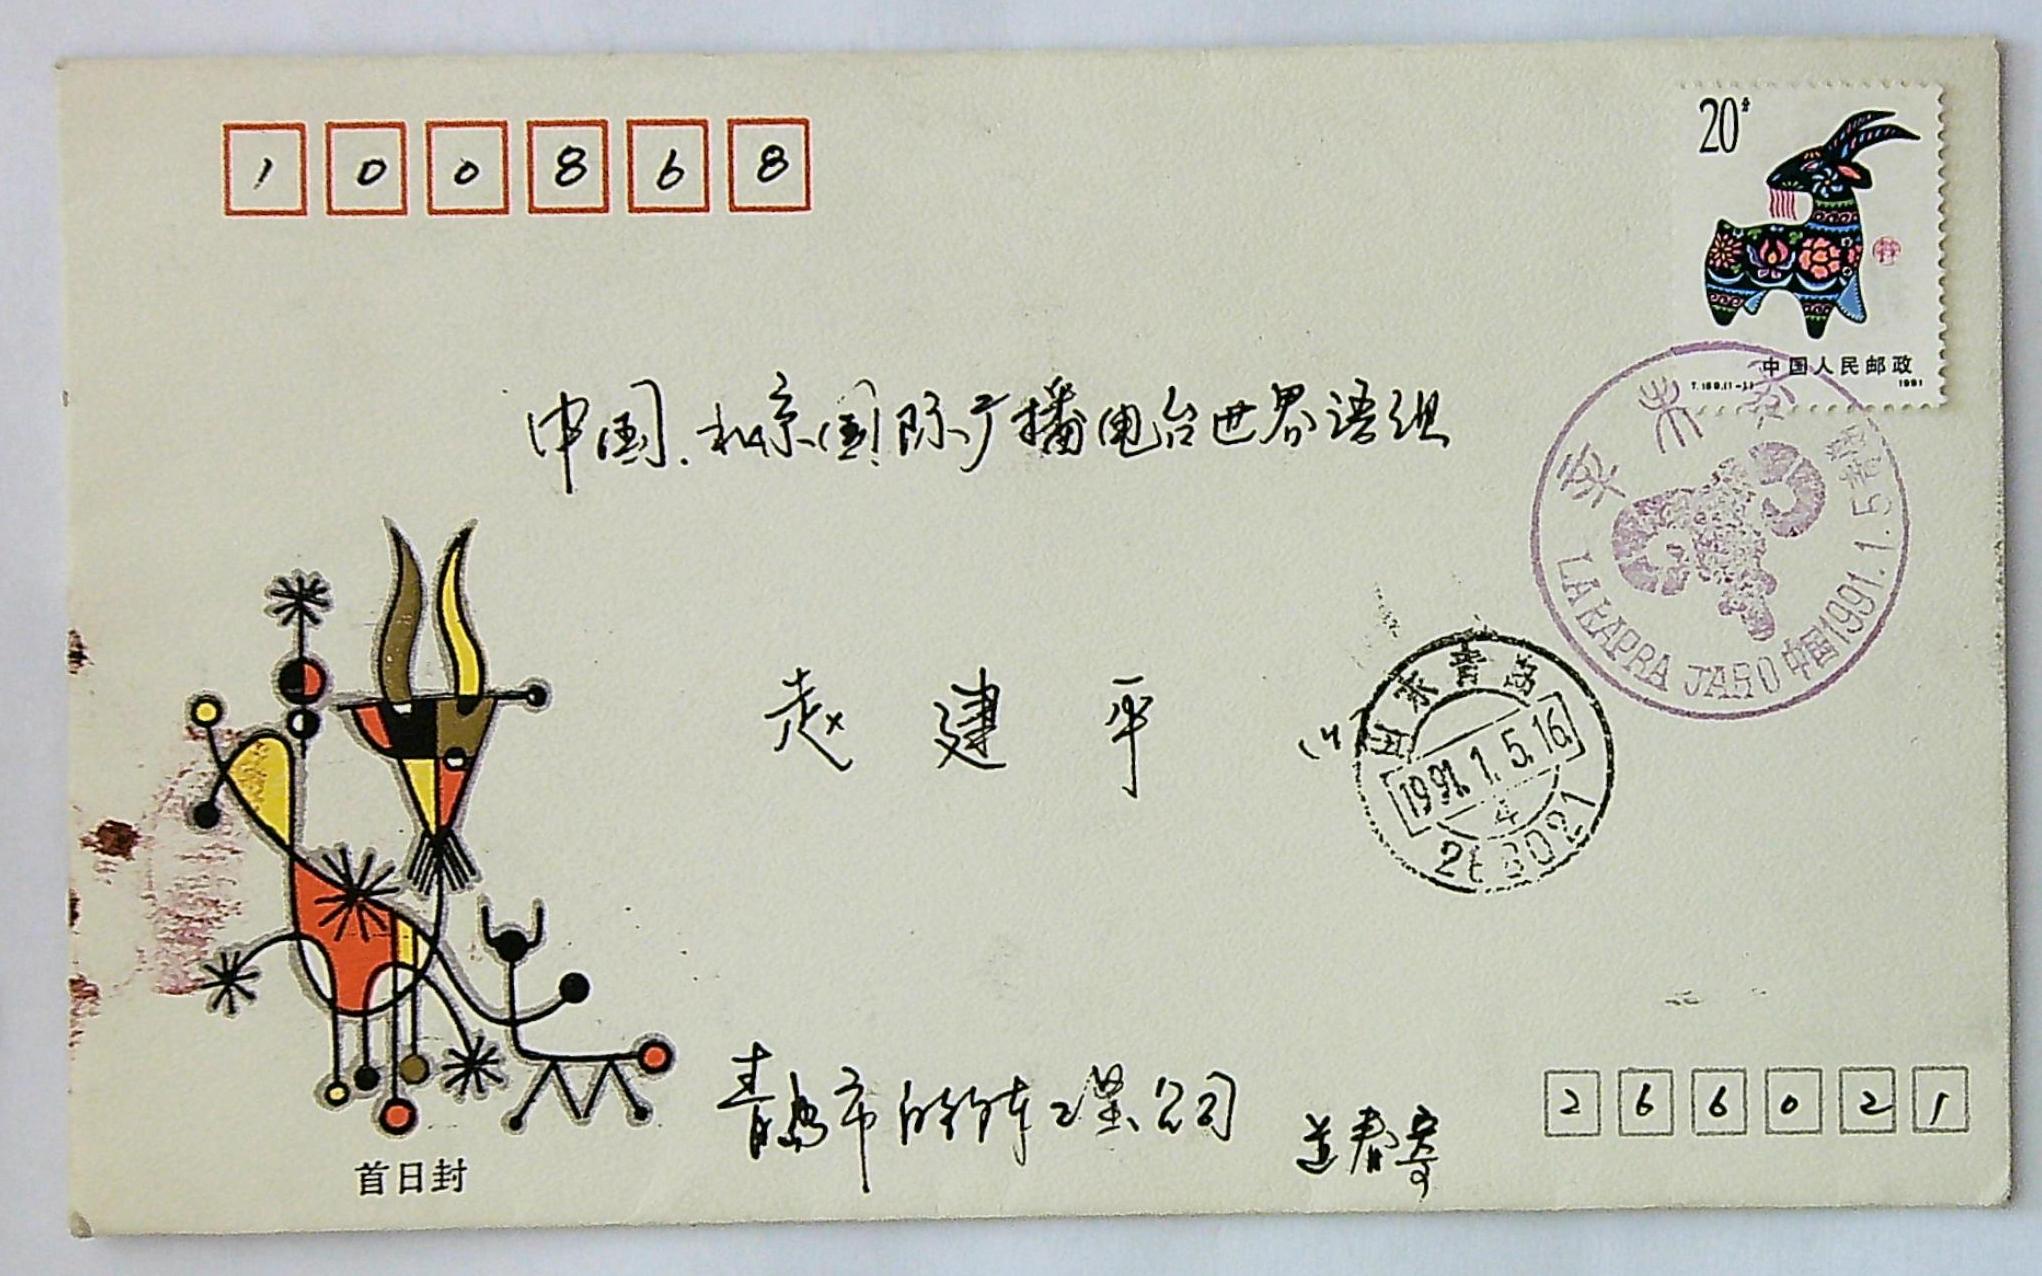 100868
20分
中国人民邮政
T.159.(1-1)
1991
中国.北京国际广播电台世界语组
辛未年
LA KAPRA JARO 中国1991.1.5青岛
赵建平
山东青岛
1991.1.5.16
4
266021
青岛市自行车工业公司
首日封
266021